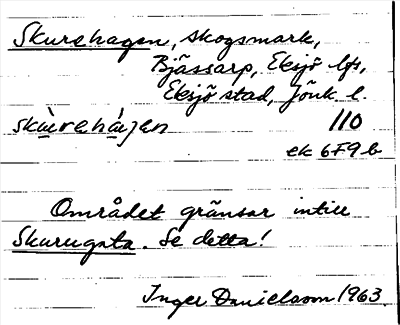 Skurehagen, skogsmark,
Bjässarp, Eksjö lfs,
Eksjö stad, Jönk. l.
skùrehájen 110
ek 6F9b
Området gränsar intill
Skurugata. Se detta!
Inger Danielsson 1963